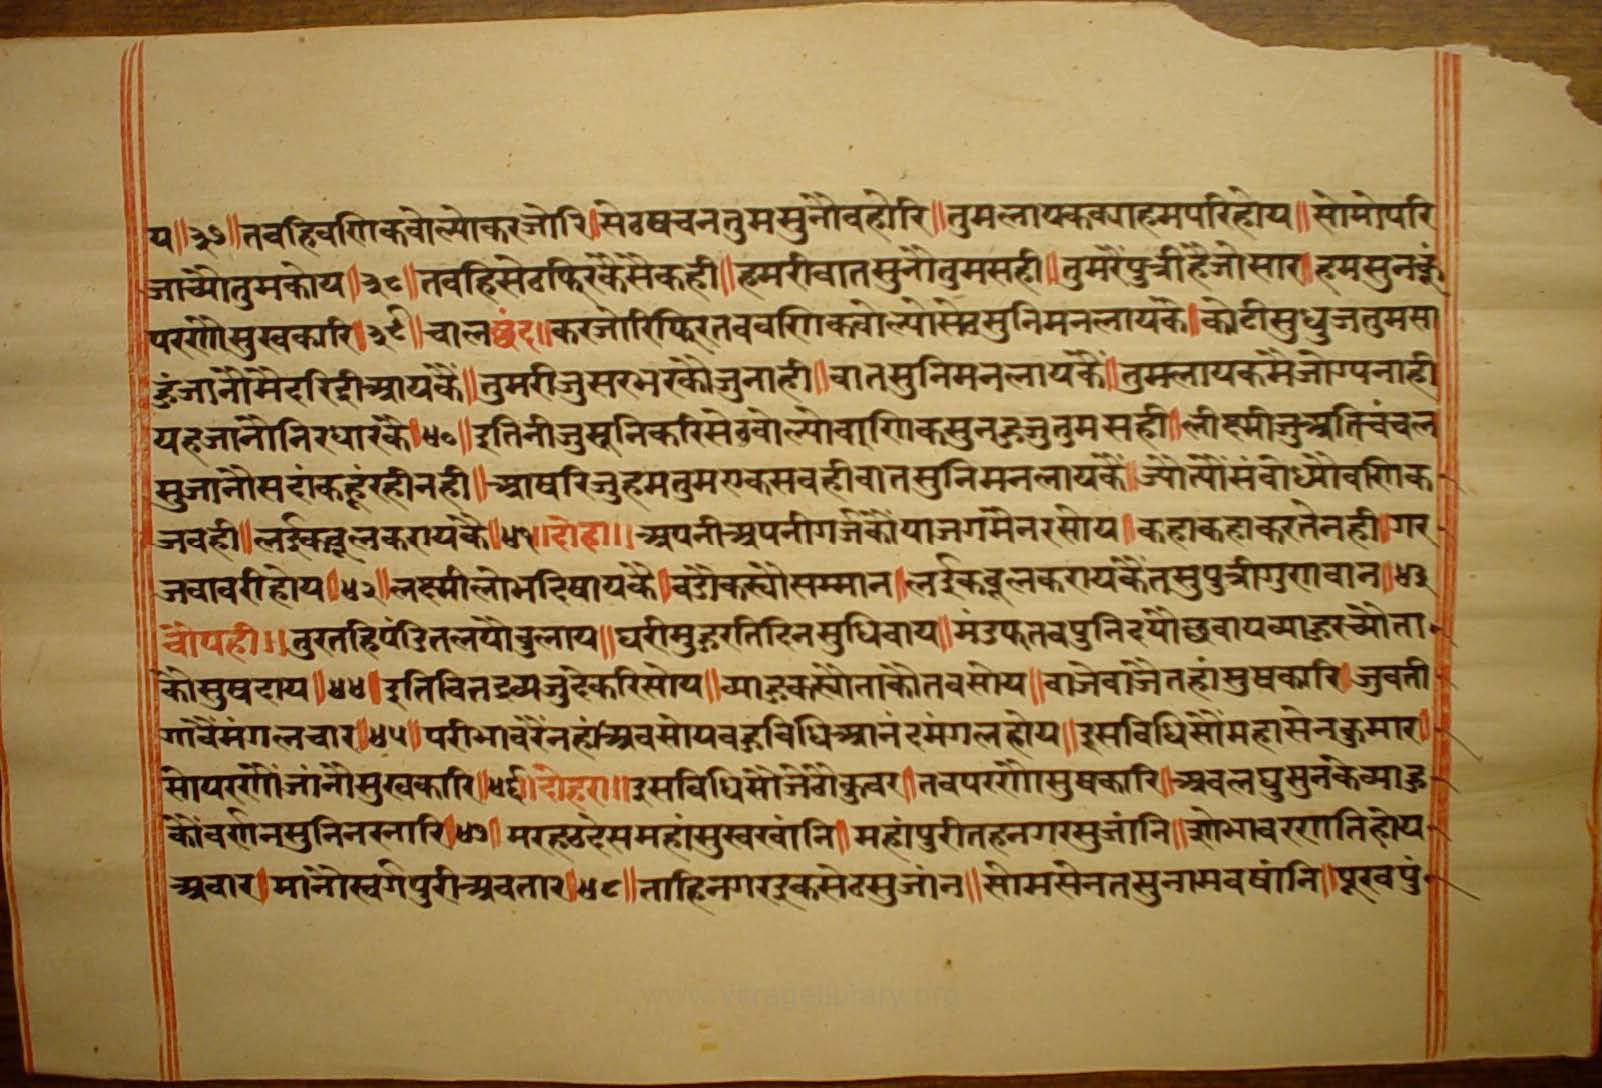 य॥३७॥तवहिवणिकवोल्योकरजोरि।सेठवचनतुमसुनौवहोरि॥तुमलायककव्याहमपरिहोय॥सोमोपरि
जाच्यौतुमकोय॥३८॥तवहिसेठफिरकैसैकही॥हमरीवातसुनौतुमसही॥तुमरैपुत्रीहैजोसार।हमसुनकूं
परणौसुखकारि।३९॥चालछंद॥करजोरिफिरतववणिकवोल्योसेठसुनिमनलायकै।कोटीसुधुजतुमसा
हुंजानौमैदरिद्रीआयकैं॥तुमरीजुसरभरकौजुनाही॥वातसुनिमनलायकैं॥तुमलायकमैजोग्यनाही
यहजानौनिरधारकै।४०॥इतिनीजुसूनिकरिसेठवोल्योवाणिकसुनहुजुतुमसही।लीक्ष्मीजुअतिचंचल
सुजानौसदांकहूंरहीनही॥आषरिजुहमतुमएकसवहीवातसुनिमनलायकैं॥ज्यौंत्यौंसंवोध्यौवणिक
जवही॥लईकवूलकरायकै॥४१॥दोहा॥अपनीअपनीगर्जकौंपाजगमैनरसोय।कहाकहाकरतेनही।गर
जवावरीहोय।४२॥लक्ष्मीलोभदिषायकै।वडौकस्यौसम्मान।लईकवूलकरायकैंतूसुपुत्रीगुणवान॥४३
चौपही॥तुरतहिपंडितलयौवुलाय॥घरीमुहुरतिदिनसुधिवाय॥मंडफतवपुनिदयौछवायव्याहुरच्यौता
कौसुषदाय॥४४॥इतिवितद्रव्यजुदेकरिसोय॥व्याहुकस्यौताकौतवसोय॥वाजेवाजैतहांसुषकारि।जुवती
गांवैंमंगलचार।४५॥परीभावरैंनहांअवसोयवहुविधिआनंदमंगलहोय॥इसविधिसौंमहासेनकुमार।
सोपरणौंजांनौसुखकारि॥४६॥दोहरा॥इसविधिसौजेठौकुवर।तवपरणौसुषकारि।अवलघुसुनकेव्याहु
कौंवर्णनसुनिनरनारि।४७॥मरहठदेसमहांसुखखांनि॥महांपुरीतहनगरसुजांनि॥सोभावरणातिहोय
अवार।मांनौस्वर्गपुरीअवतार।४८॥ताहिनगरइकसेठसुजांन॥सोमसेनतसुनामवषांनि॥पूरवपुं
www.veragelibrary.org